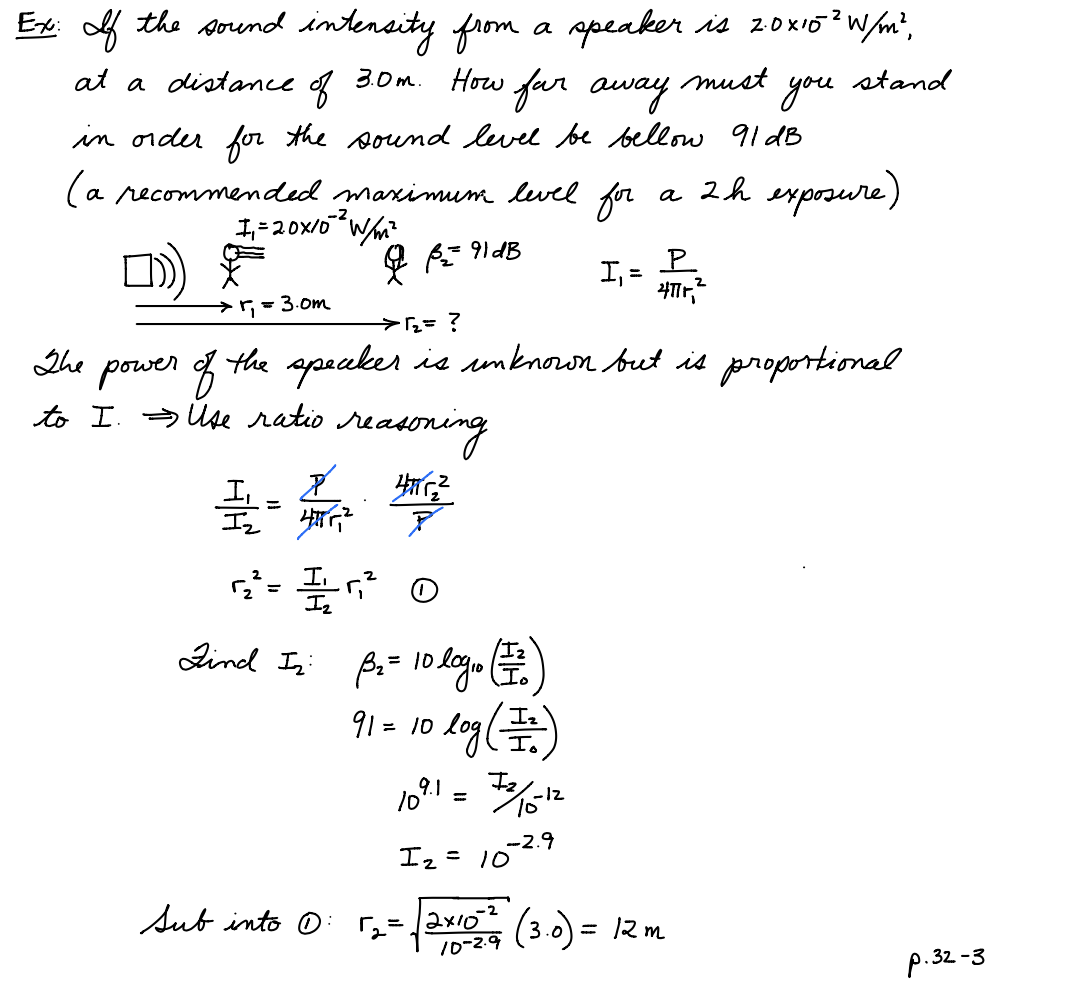 Ex: If the sound intensity from a speaker is 2.0x10⁻² W/m²,
at a distance of 3.0m. How far away must you stand
in order for the sound level be bellow 91 dB
(a recommended maximum level for a 2h exposure)
I₁ = 2.0x10⁻² W/m²
β₂ = 91 dB
I₁ = P / 4πr₁²
r₁ = 3.0m
r₂ = ?
The power of the speaker is unknown but is proportional
to I. ⇒ Use ratio reasoning
I₁/I₂ = P/4πr₁² · 4πr₂²/P
r₂² = I₁/I₂ r₁² ①
Find I₂: β₂ = 10 log₁₀ (I₂/I₀)
91 = 10 log (I₂/I₀)
10^9.1 = I₂/10⁻¹²
I₂ = 10^-2.9
Sub into ①: r₂ = √(2x10⁻²/10^-2.9) (3.0) = 12 m
p.32-3